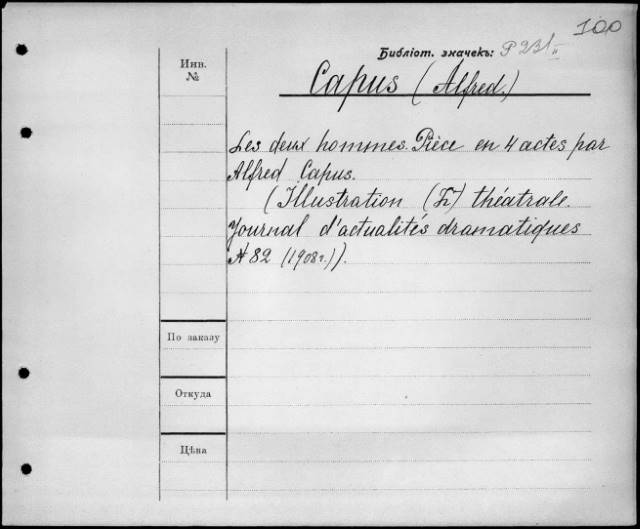 100
Библіот. значекъ: P 231 II
Инв. №
Capus (Alfred.)
Les deux hommes. Pièce en 4 actes par
Alfred Capus.
(Illustration (L') théatrale.
Journal d'actualités dramatiques
№ 82 (1908г.)).
По заказу
Откуда
Цѣна